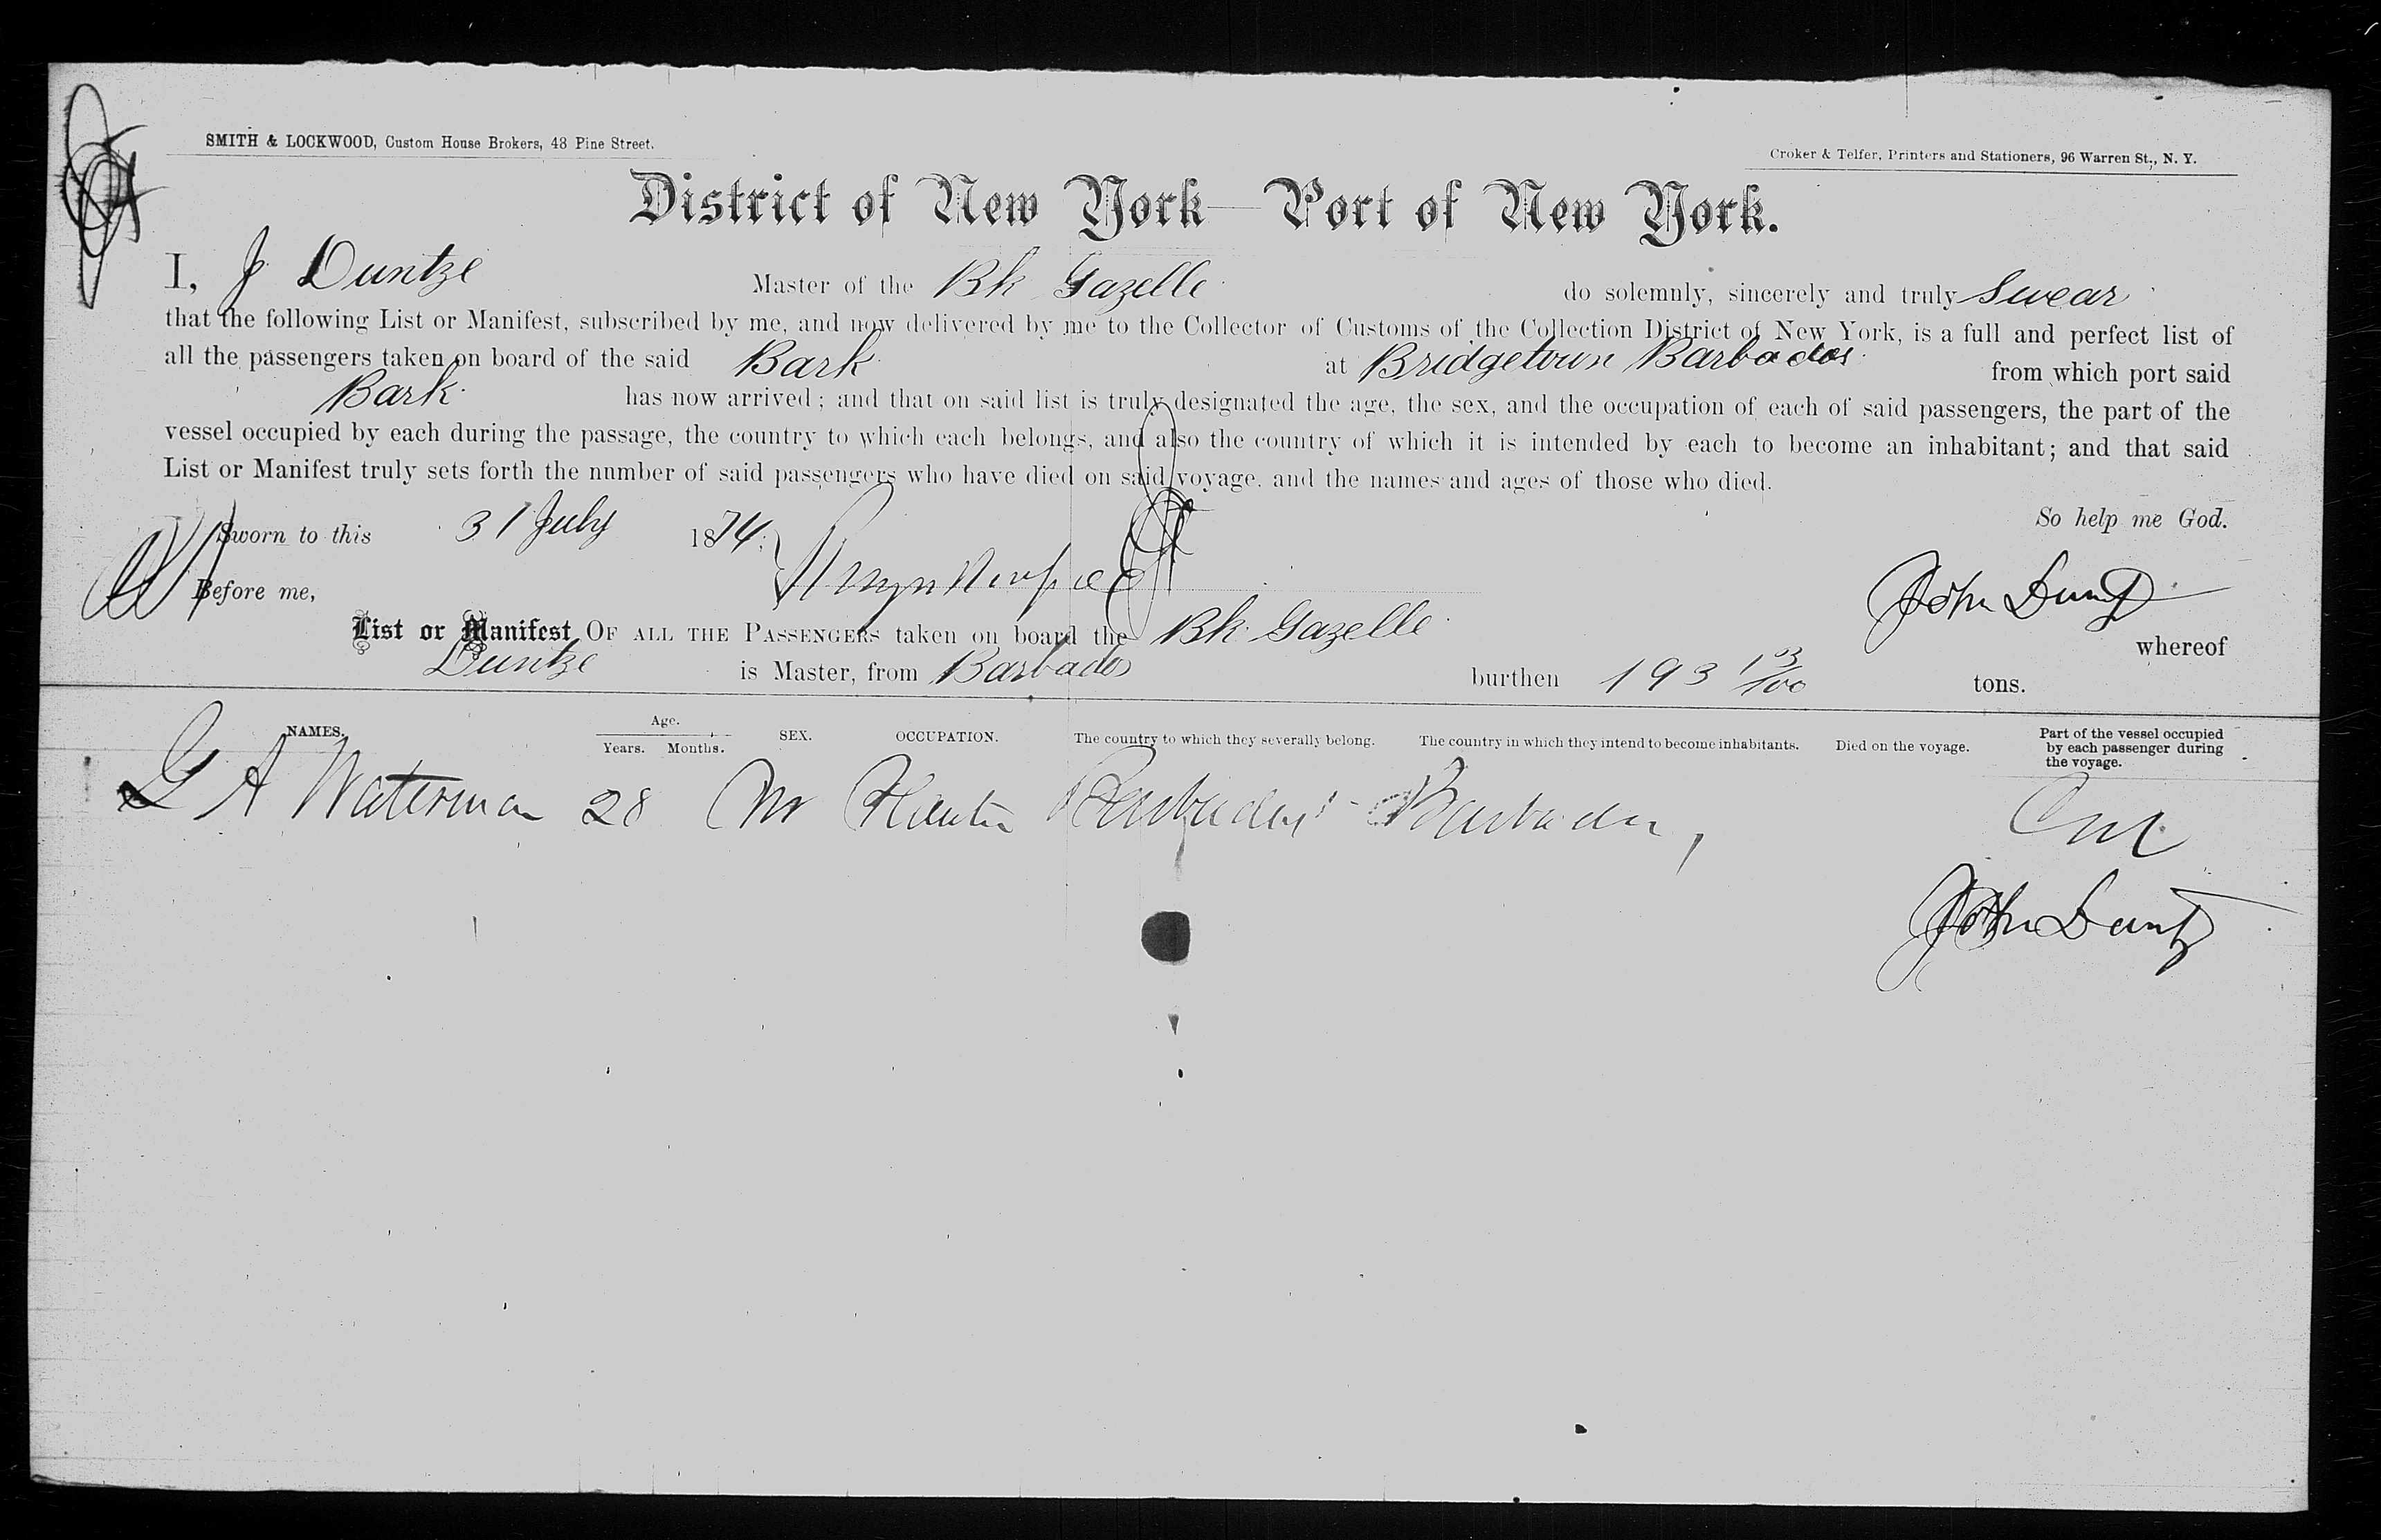 SMITH & LOCKWOOD, Custom House Brokers, 48 Pine Street.
Croker & Telfer, Printers and Stationers, 96 Warren St., N. Y.
District of New York—Port of New York.
I, J Duntze Master of the Bk Gazelle do solemnly, sincerely and truly Swear
that the following List or Manifest, subscribed by me, and now delivered by me to the Collector of Customs of the Collection District of New York, is a full and perfect list of
all the passengers taken on board of the said Bark at Bridgetown Barbados from which port said
Bark has now arrived; and that on said list is truly designated the age, the sex, and the occupation of each of said passengers, the part of the
vessel occupied by each during the passage, the country to which each belongs, and also the country of which it is intended by each to become an inhabitant; and that said
List or Manifest truly sets forth the number of said passengers who have died on said voyage, and the names and ages of those who died.
So help me God.
Sworn to this 31 July 1874
Before me,
John Duntz
List or Manifest OF ALL THE PASSENGERS taken on board the Bk Gazelle whereof
Duntze is Master, from Barbados burthen 193 13/100 tons.
NAMES. Age. Years. Months. SEX. OCCUPATION. The country to which they severally belong. The country in which they intend to become inhabitants. Died on the voyage. Part of the vessel occupied by each passenger during the voyage.
G A Waterman 28 M Planter Barbados Barbados
John Duntz